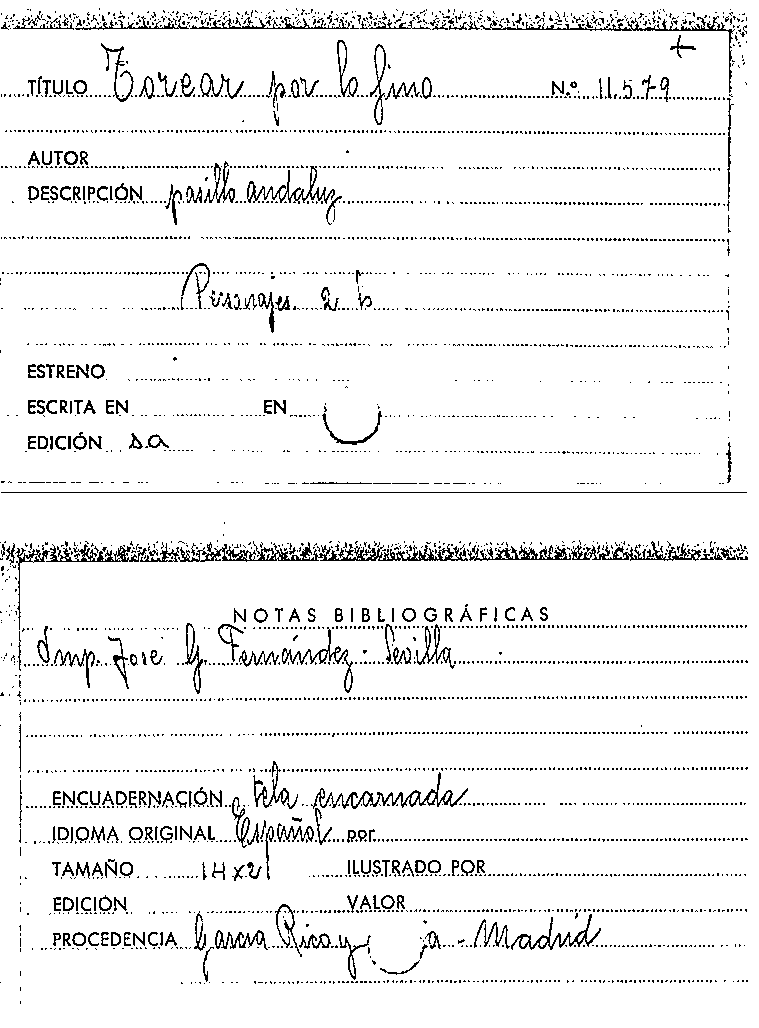 +
TÍTULO Torear por lo fino N.º 11.579
AUTOR
DESCRIPCIÓN pasillo andaluz
Personajes. 2 h
ESTRENO
ESCRITA EN EN
EDICIÓN s.a
NOTAS BIBLIOGRÁFICAS
Imp. José G. Fernández. Sevilla
ENCUADERNACIÓN tela encarnada
IDIOMA ORIGINAL Español por
TAMAÑO 14x21 ILUSTRADO POR
EDICIÓN VALOR
PROCEDENCIA Garcia Rico y - Madrid